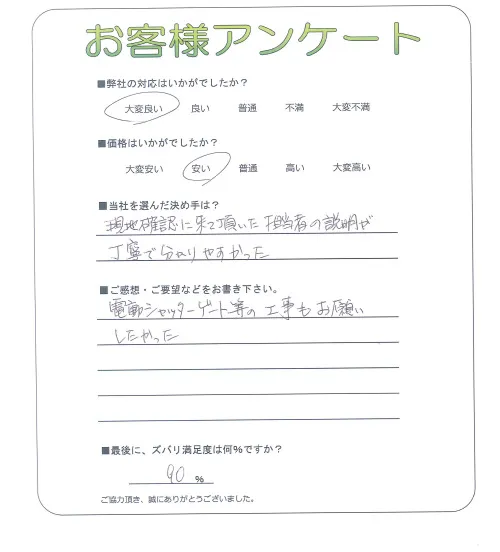 お客様アンケート
■弊社の対応はいかがでしたか？
大変良い 良い 普通 不満 大変不満
■価格はいかがでしたか？
大変安い 安い 普通 高い 大変高い
■当社を選んだ決め手は？
現地確認に来て頂いた担当者の説明が
丁寧で分かりやすかった
■ご感想・ご要望などをお書き下さい。
電動シャッターゲート等の工事もお願い
したかった
■最後に、ズバリ満足度は何%ですか？
90 %
ご協力頂き、誠にありがとうございました。